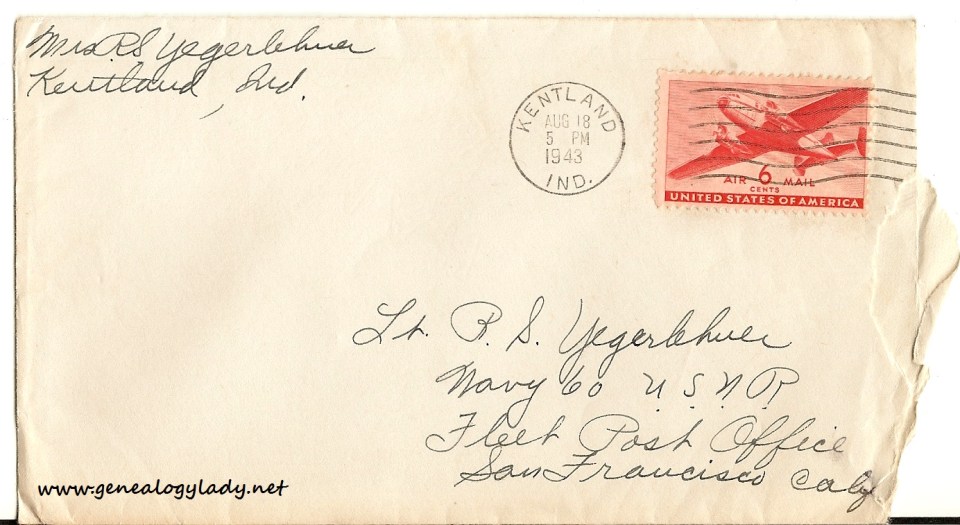 Mrs R S Yegerlehner
Kentland, Ind.
KENTLAND
AUG 18
5 PM
1943
IND.
AIR 6 MAIL
CENTS
UNITED STATES OF AMERICA
Lt. R. S. Yegerlehner
Navy 60 U.S.N.R.
Fleet Post Office
San Francisco Calif
www.genealogylady.net